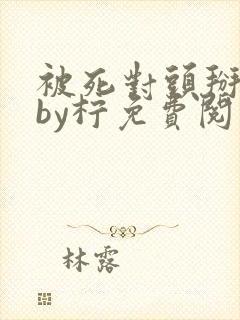 被死對頭掰
by柠免費閱
林露